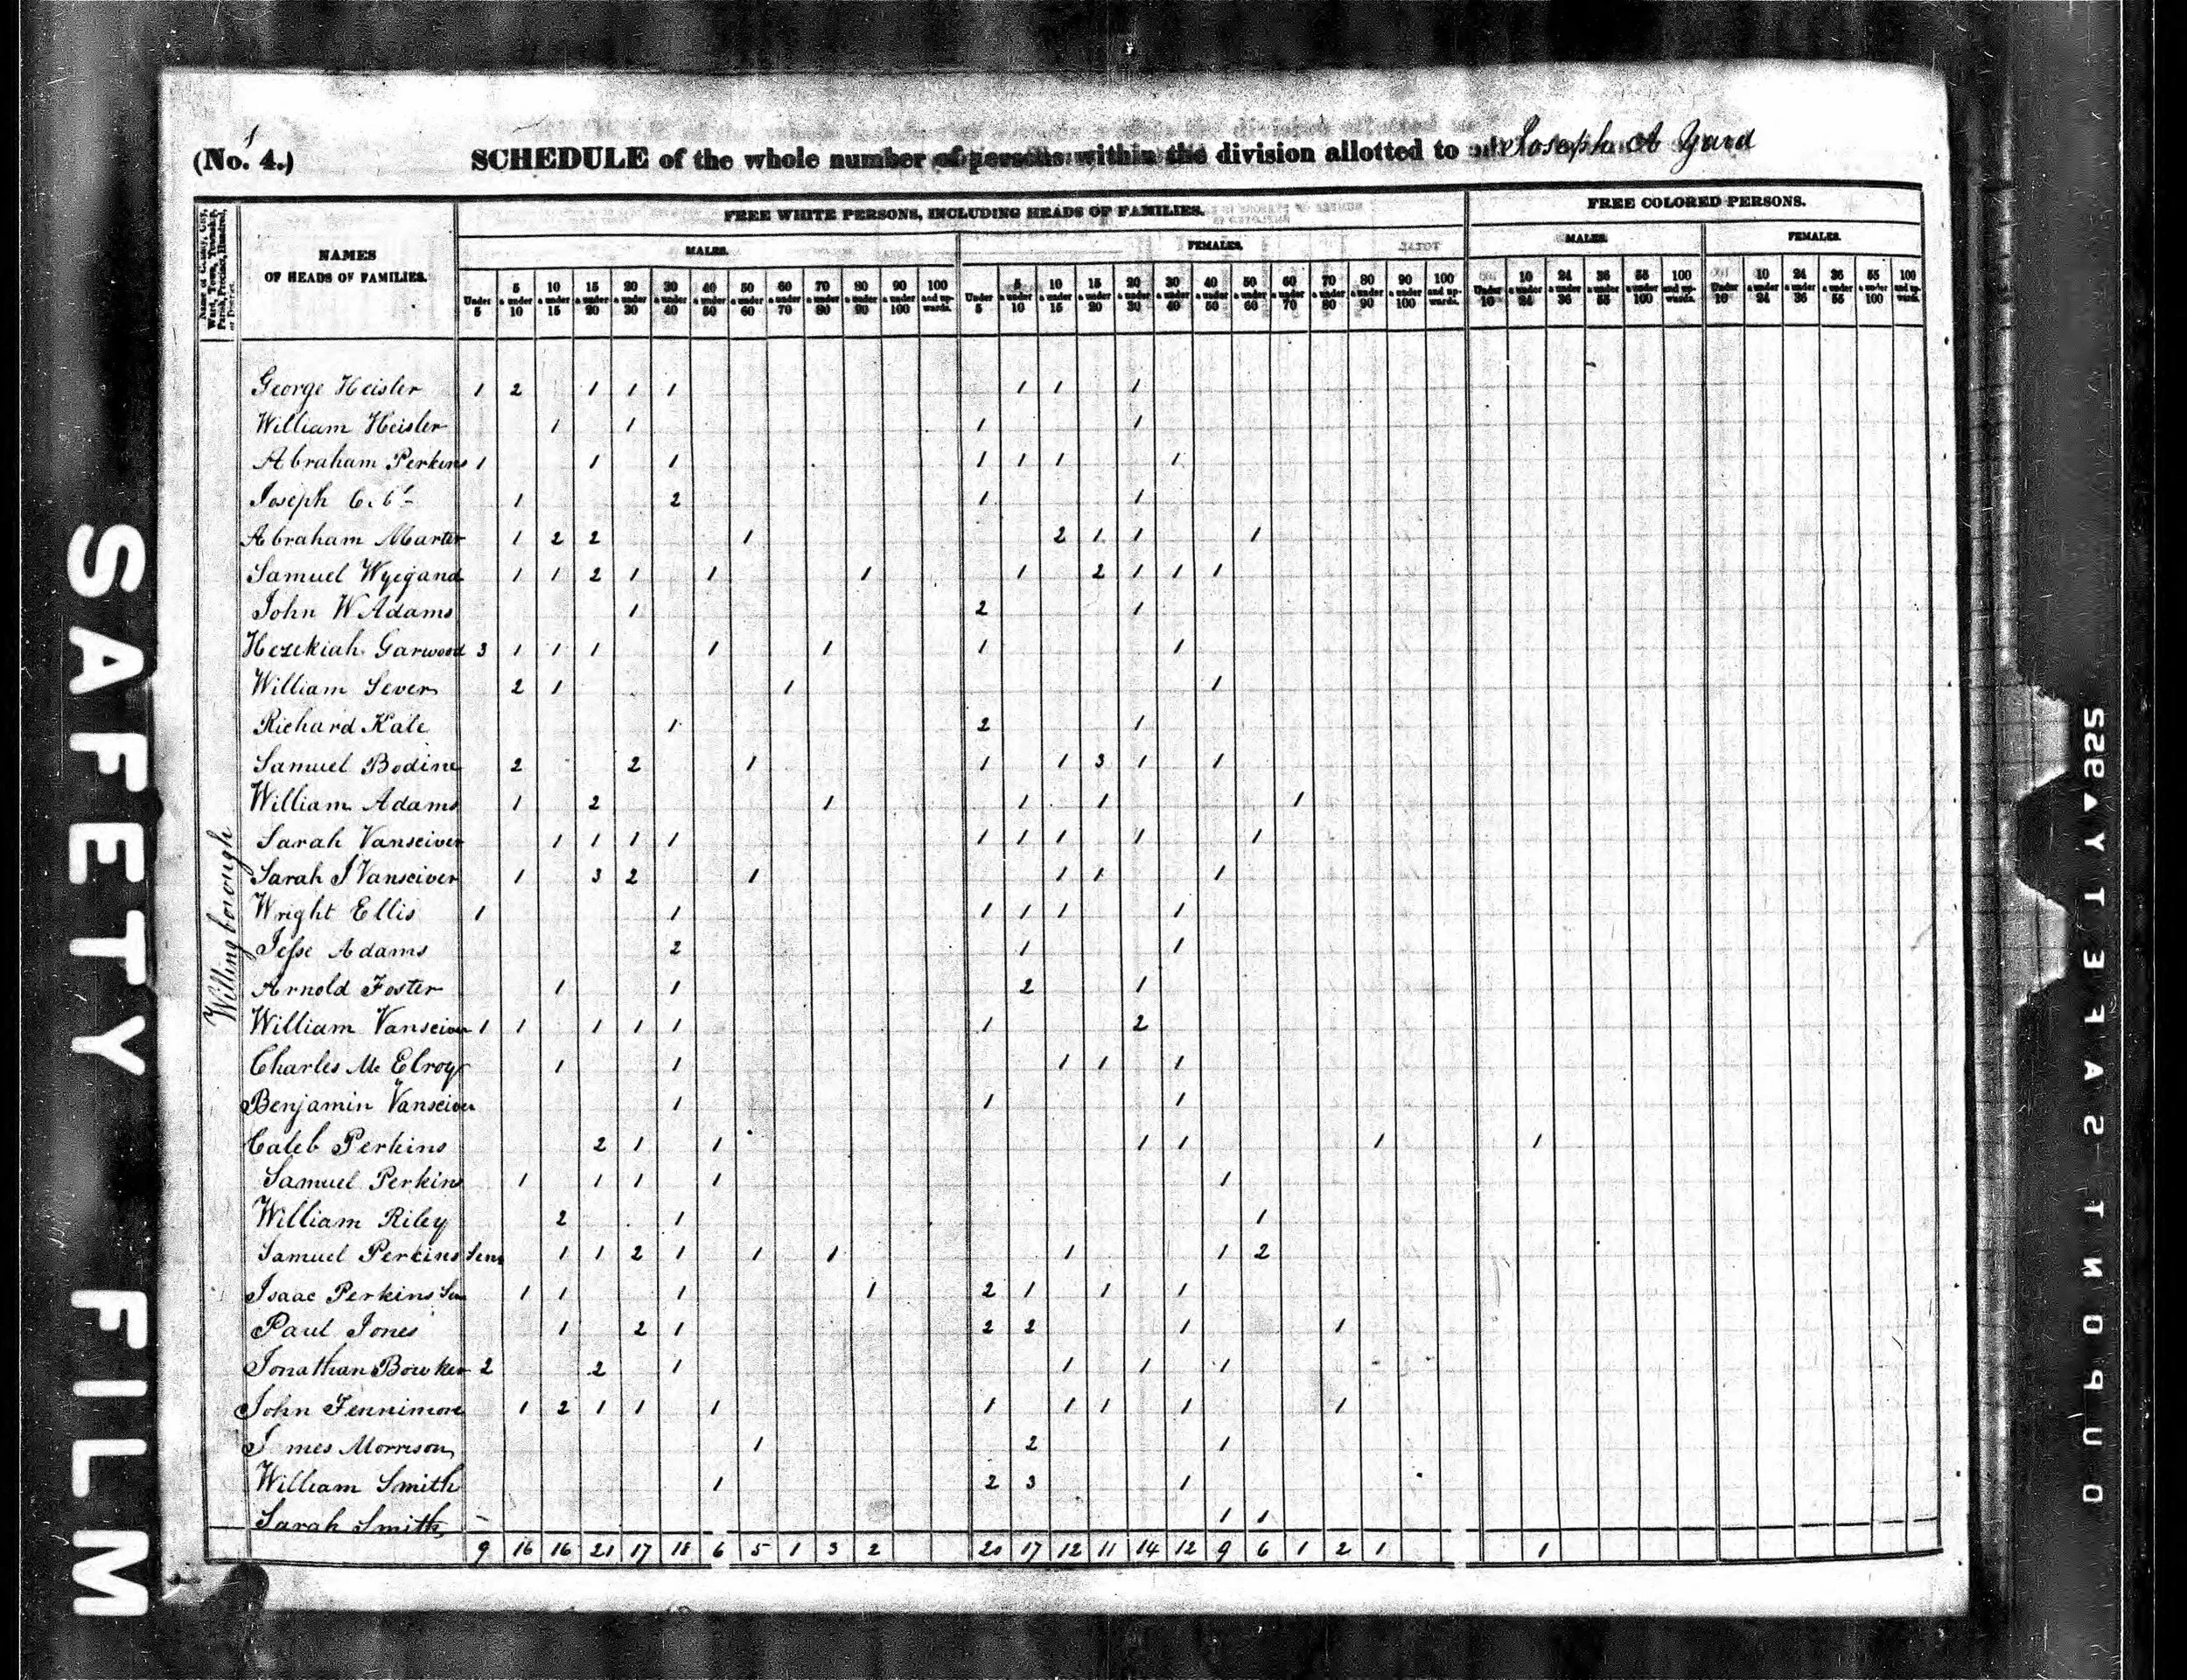 (No. 4.) SCHEDULE of the whole number of persons within the division allotted to Joseph A Yard
Name of County, City, Ward, Town, Township, Parish, Precinct, Hundred, or District.
NAMES OF HEADS OF FAMILIES.
FREE WHITE PERSONS, INCLUDING HEADS OF FAMILIES.
FREE COLORED PERSONS.
MALES. FEMALES. MALES. FEMALES.
Under 5 | 5 & under 10 | 10 & under 15 | 15 & under 20 | 20 & under 30 | 30 & under 40 | 40 & under 50 | 50 & under 60 | 60 & under 70 | 70 & under 80 | 80 & under 90 | 90 & under 100 | 100 and upwards. | Under 5 | 5 & under 10 | 10 & under 15 | 15 & under 20 | 20 & under 30 | 30 & under 40 | 40 & under 50 | 50 & under 60 | 60 & under 70 | 70 & under 80 | 80 & under 90 | 90 & under 100 | 100 and upwards. | Under 10 | 10 & under 24 | 24 & under 36 | 36 & under 55 | 55 & under 100 | 100 and upwards. | Under 10 | 10 & under 24 | 24 & under 36 | 36 & under 55 | 55 & under 100 | 100 and upwards.
Willingborough
George Heisler 1 2 1 1 1 1 1 1
William Heisler 1 1 1 1
Abraham Perkins 1 1 1 1 1 1 1
Joseph C. 1 2 1 1
Abraham Marter 1 2 2 1 2 1 1 1
Samuel Wyegand 1 1 2 1 1 1 1 2 1 1 1
John W Adams 1 2 1
Hezekiah Garwood 3 1 1 1 1 1 1 1
William Sever 2 1 1 1
Richard Kate 1 2 1
Samuel Bodine 2 2 1 1 1 3 1 1
William Adams 1 2 1 1 1 1
Sarah Vansciver 1 1 1 1 1 1 1 1 1
Sarah J Vansciver 1 3 2 1 1 1 1
Wright Ellis 1 1 1 1 1 1
Jesse Adams 2 1 1
Arnold Foster 1 1 2 1
William Vansciver 1 1 1 1 1 1 2
Charles Mc Elroy 1 1 1 1 1
Benjamin Vansciver 1 1 1
Caleb Perkins 2 1 1 1 1 1 1
Samuel Perkins 1 1 1 1 1
William Riley 2 1 1
Samuel Perkins Senr 1 1 2 1 1 1 1 1 2
Isaac Perkins Sen 1 1 1 1 2 1 1 1
Paul Jones 1 2 1 2 2 1 1
Jonathan Bowker 2 2 1 1 1 1
John Fennimore 1 2 1 1 1 1 1 1 1 1
J mes Morrison 1 2 1
William Smith 1 2 3 1
Sarah Smith 1 1
9 16 16 21 17 18 6 5 1 3 2 20 17 12 11 14 12 9 6 1 2 1 1
SAFETY FILM
DUPONT SAFETY